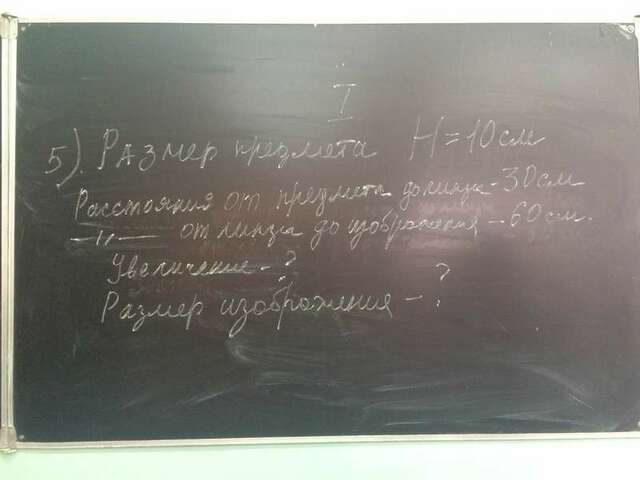 I
5) Размер предмета H = 10 см
Расстояния от предмета до линзы - 30 см
—"— от линзы до изображения - 60 см.
Увеличение - ?
Размер изображения - ?